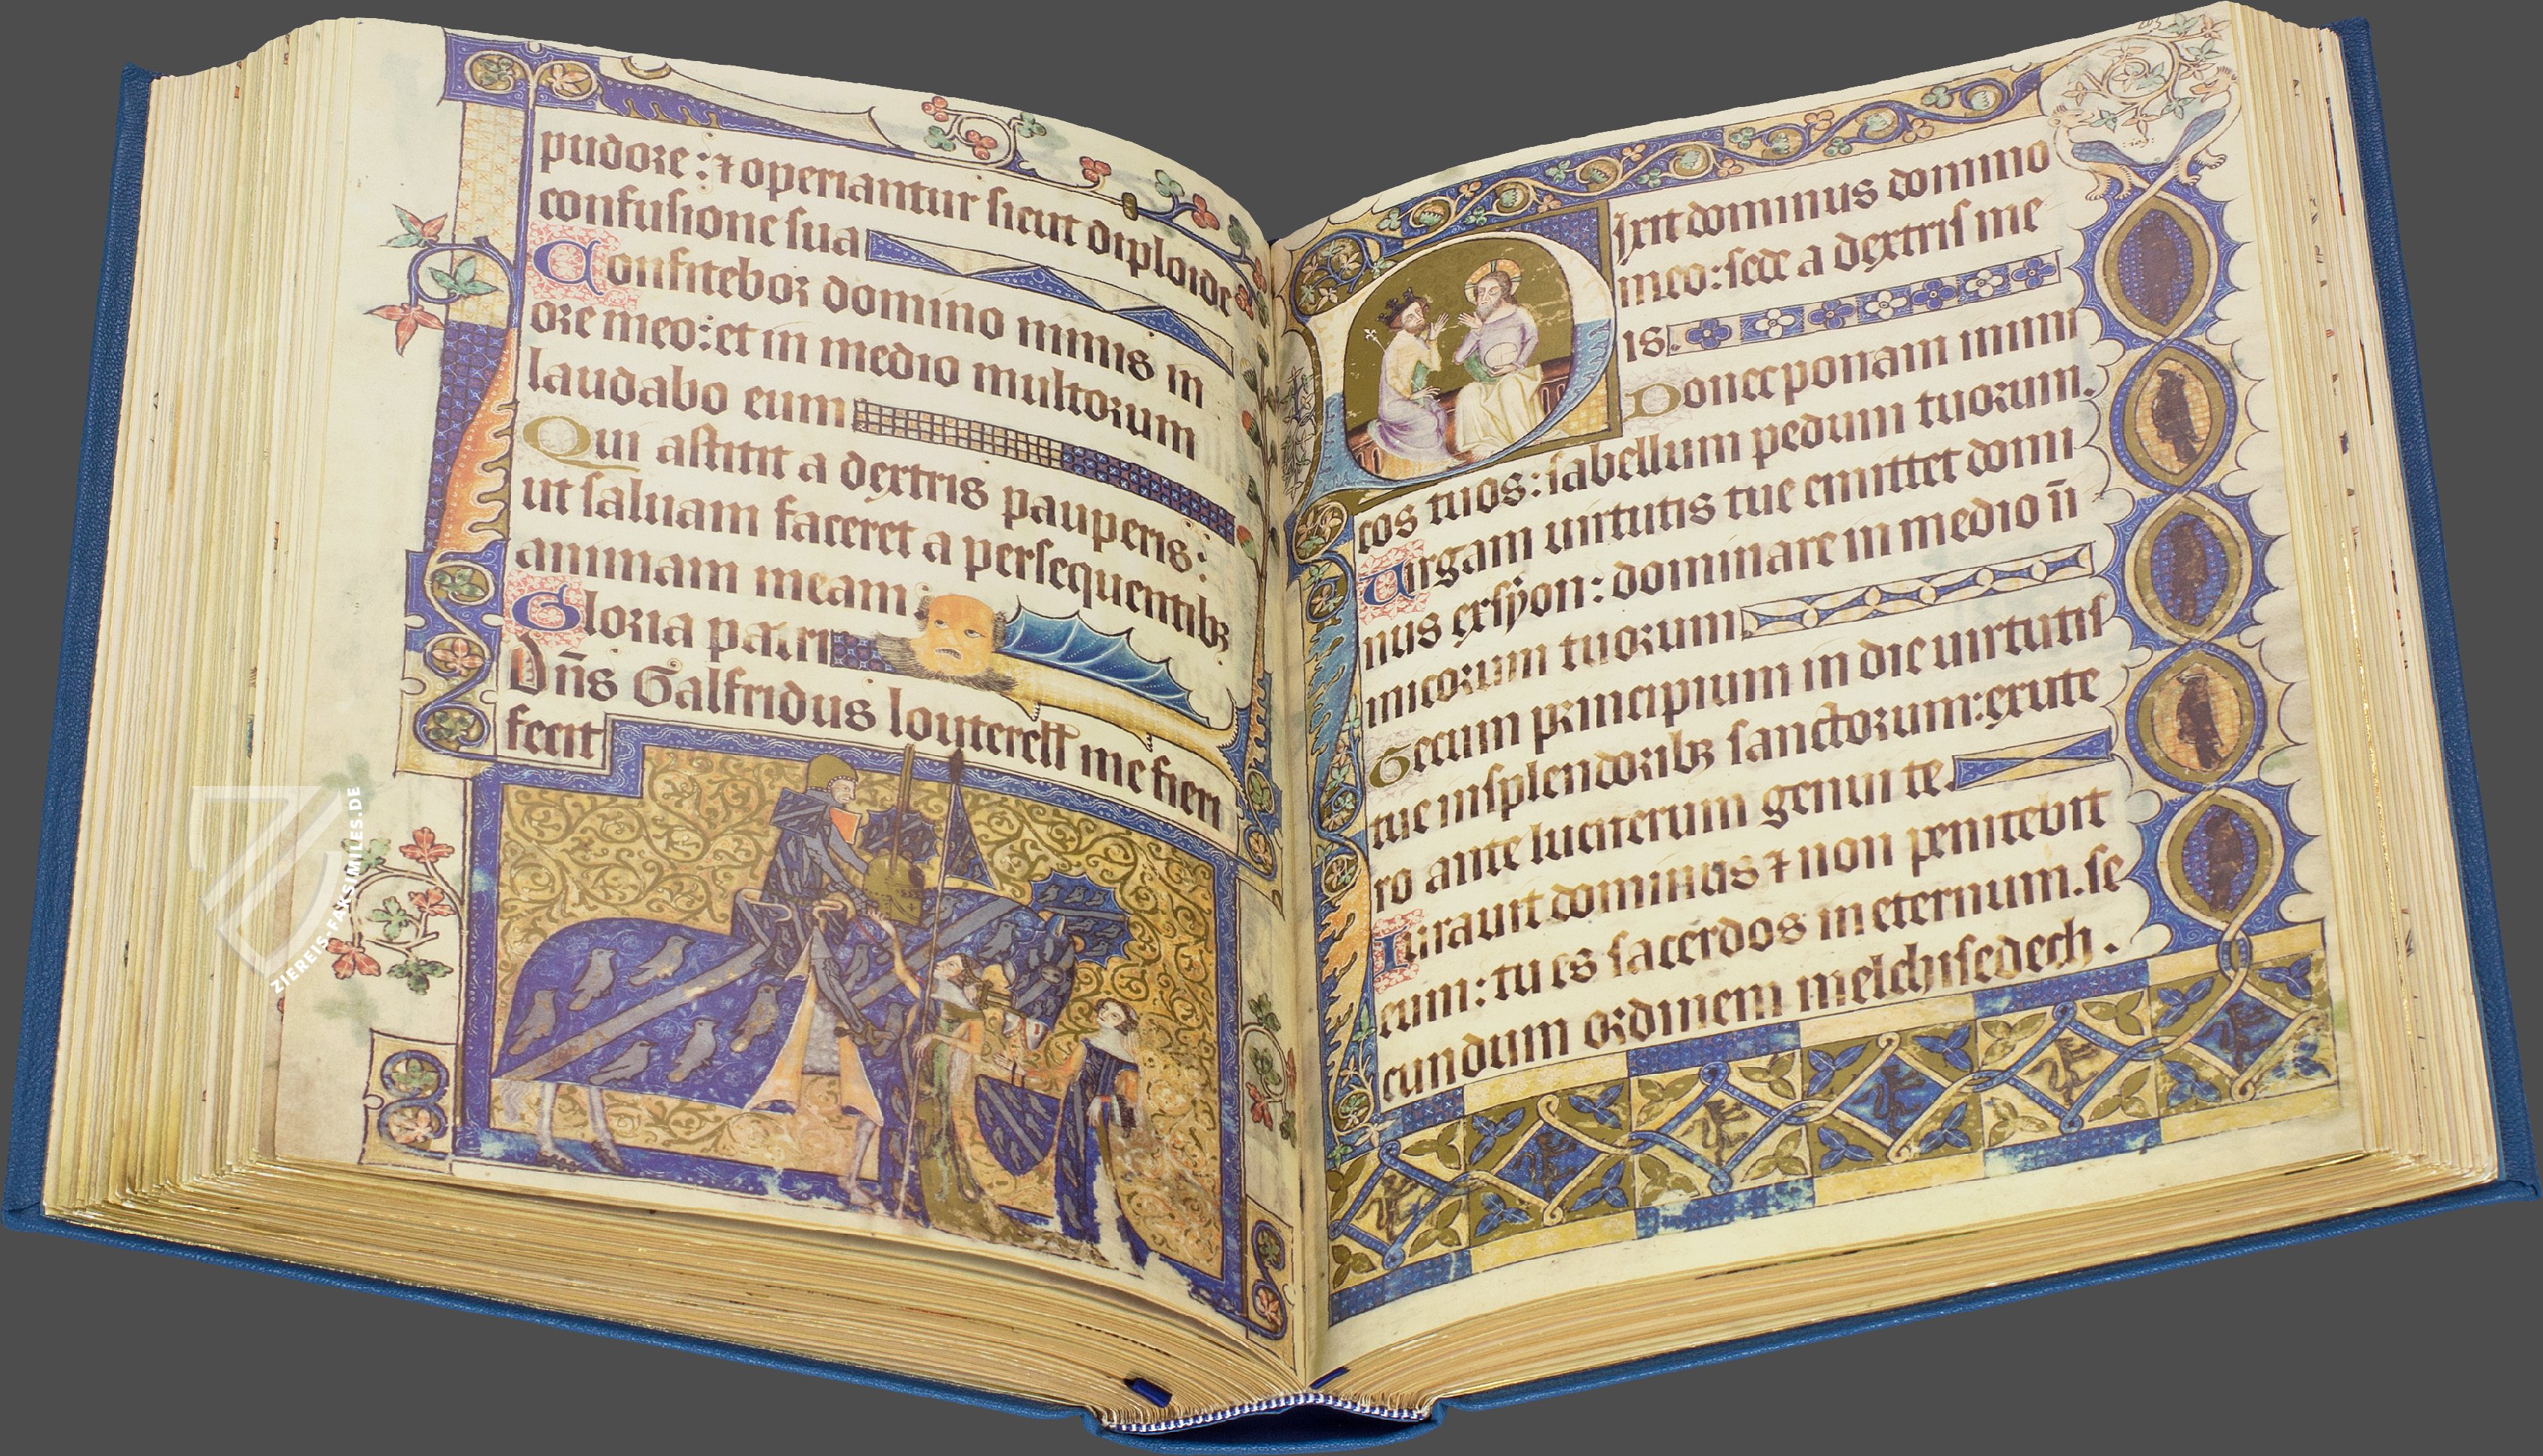 pudore : ⁊ operiantur sicut diploide
confusione sua
Confitebor domino nimis in
ore meo : et in medio multorum
laudabo eum
Qui astitit a dextris pauperis :
ut saluam faceret a persequentibꝫ
animam meam
Gloria patri
Dn̄s Galfridus louterell me fieri
fecit
Dixit dominus domino
meo : sede a dextris me
is
Donec ponam inimi
cos tuos : scabellum pedum tuorum.
Uirgam uirtutis tue emittet domi
nus ex syon : dominare in medio ī
nimicorum tuorum
Tecum principium in die uirtutis
tue in splendoribꝫ sanctorum : ex ute
ro ante luciferum genui te.
Iurauit dominus ⁊ non penitebit
eum : tu es sacerdos in eternum . se
cundum ordinem melchisedech .
ZIEREIS-FAKSIMILES.DE